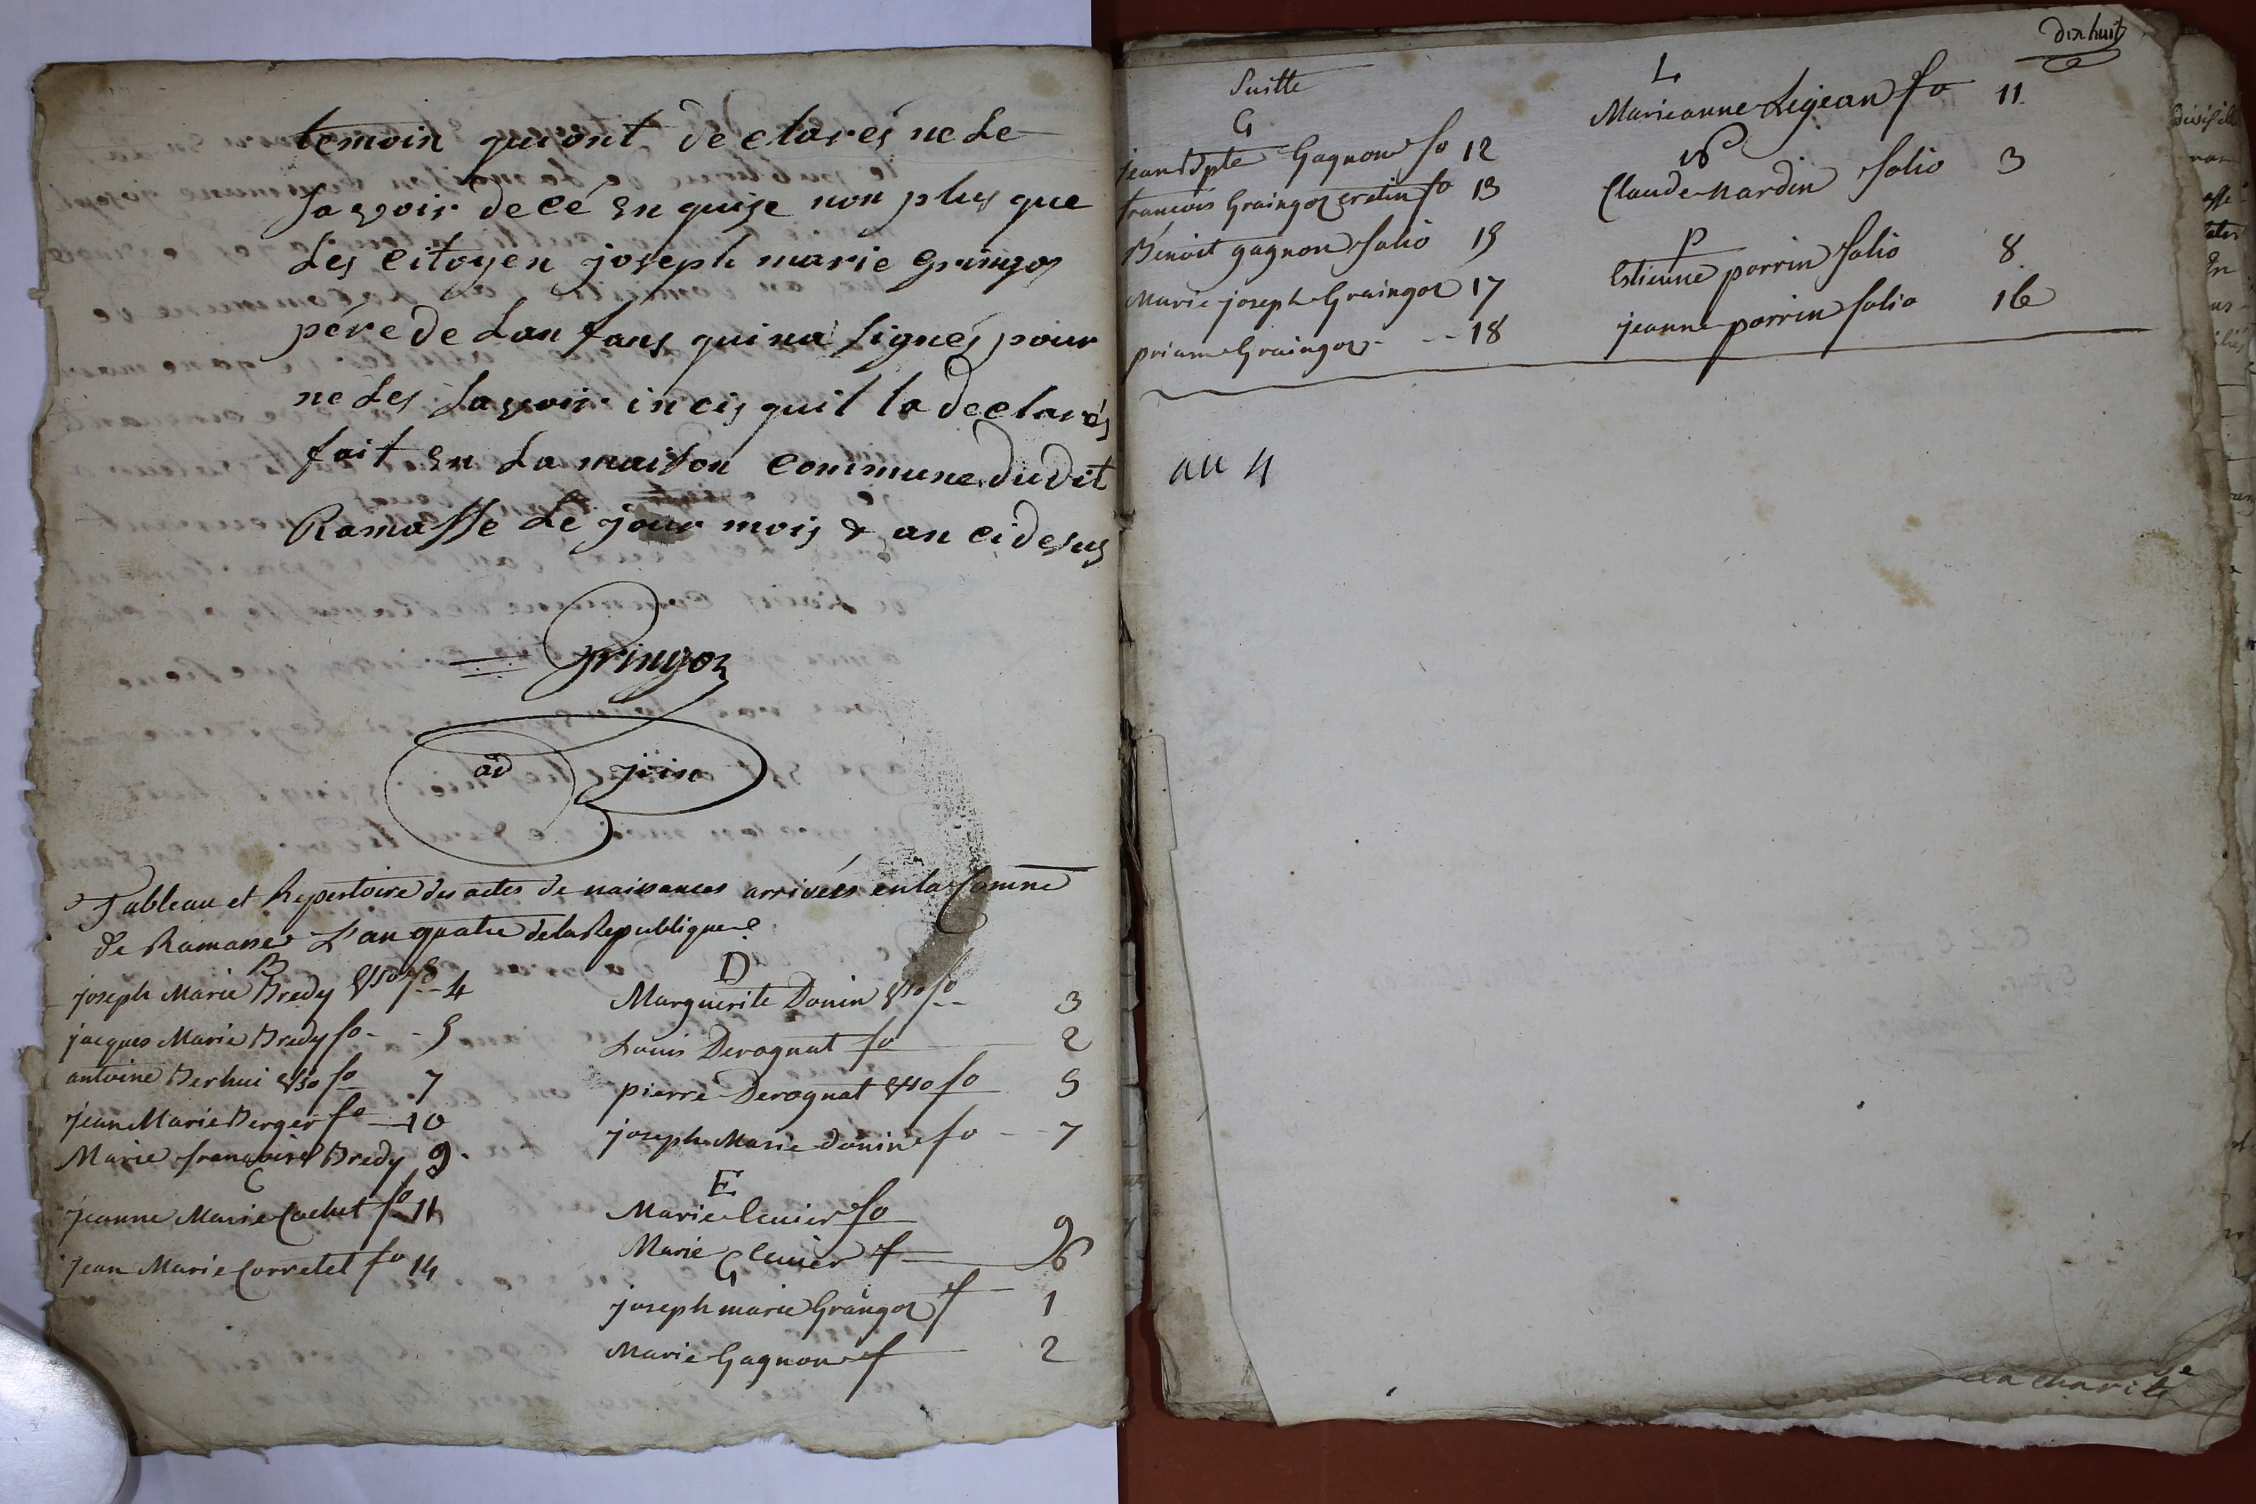 temoin qui ont de clarés ne Le
Savoir de cé en quise non plus que
Les citoyen joseph marie gringoz
pére de Lan fans qui na signés pour
ne Les Savoir incis quil la declarés
fait en La maison commune du dit
Ramasse Le jour mois & an cidesus
gringoz
ad
Tableau et Repertoire des actes de naissances arrivées en la Comne
de Ramasse L'an quatre de la Republique
B
joseph Marie Bredy Vso fo 4
jacques Marie Bredy fo 5
antoine Berhui Vso fo 7
jean Marie Berger fo 10
Marie françoise Bredy 9
C
jeanne Marie Cochet fo 11
jean Marie Corretel fo 14
D
Marguerite Donin Vso fo 3
Louis Derognat fo 2
pierre Derognat Vso fo 5
joseph Marie donin fo 7
E
Marie Cuier fo 9
Marie Cuier f
G
joseph marie Graingoz f 1
Marie Gagnon f 2
dix huit
Suitte
G
jean Bpte Gagnon fo 12
francois Graingoz fo 13
Benoit gagnon folio 15
Marie joseph Graingoz 17
priam Graingoz 18
L
Marieanne Lejean fo 11
N
Claude nardin folio 3
P
Estienne perrin folio 8
jeanne perrin folio 16
an 4